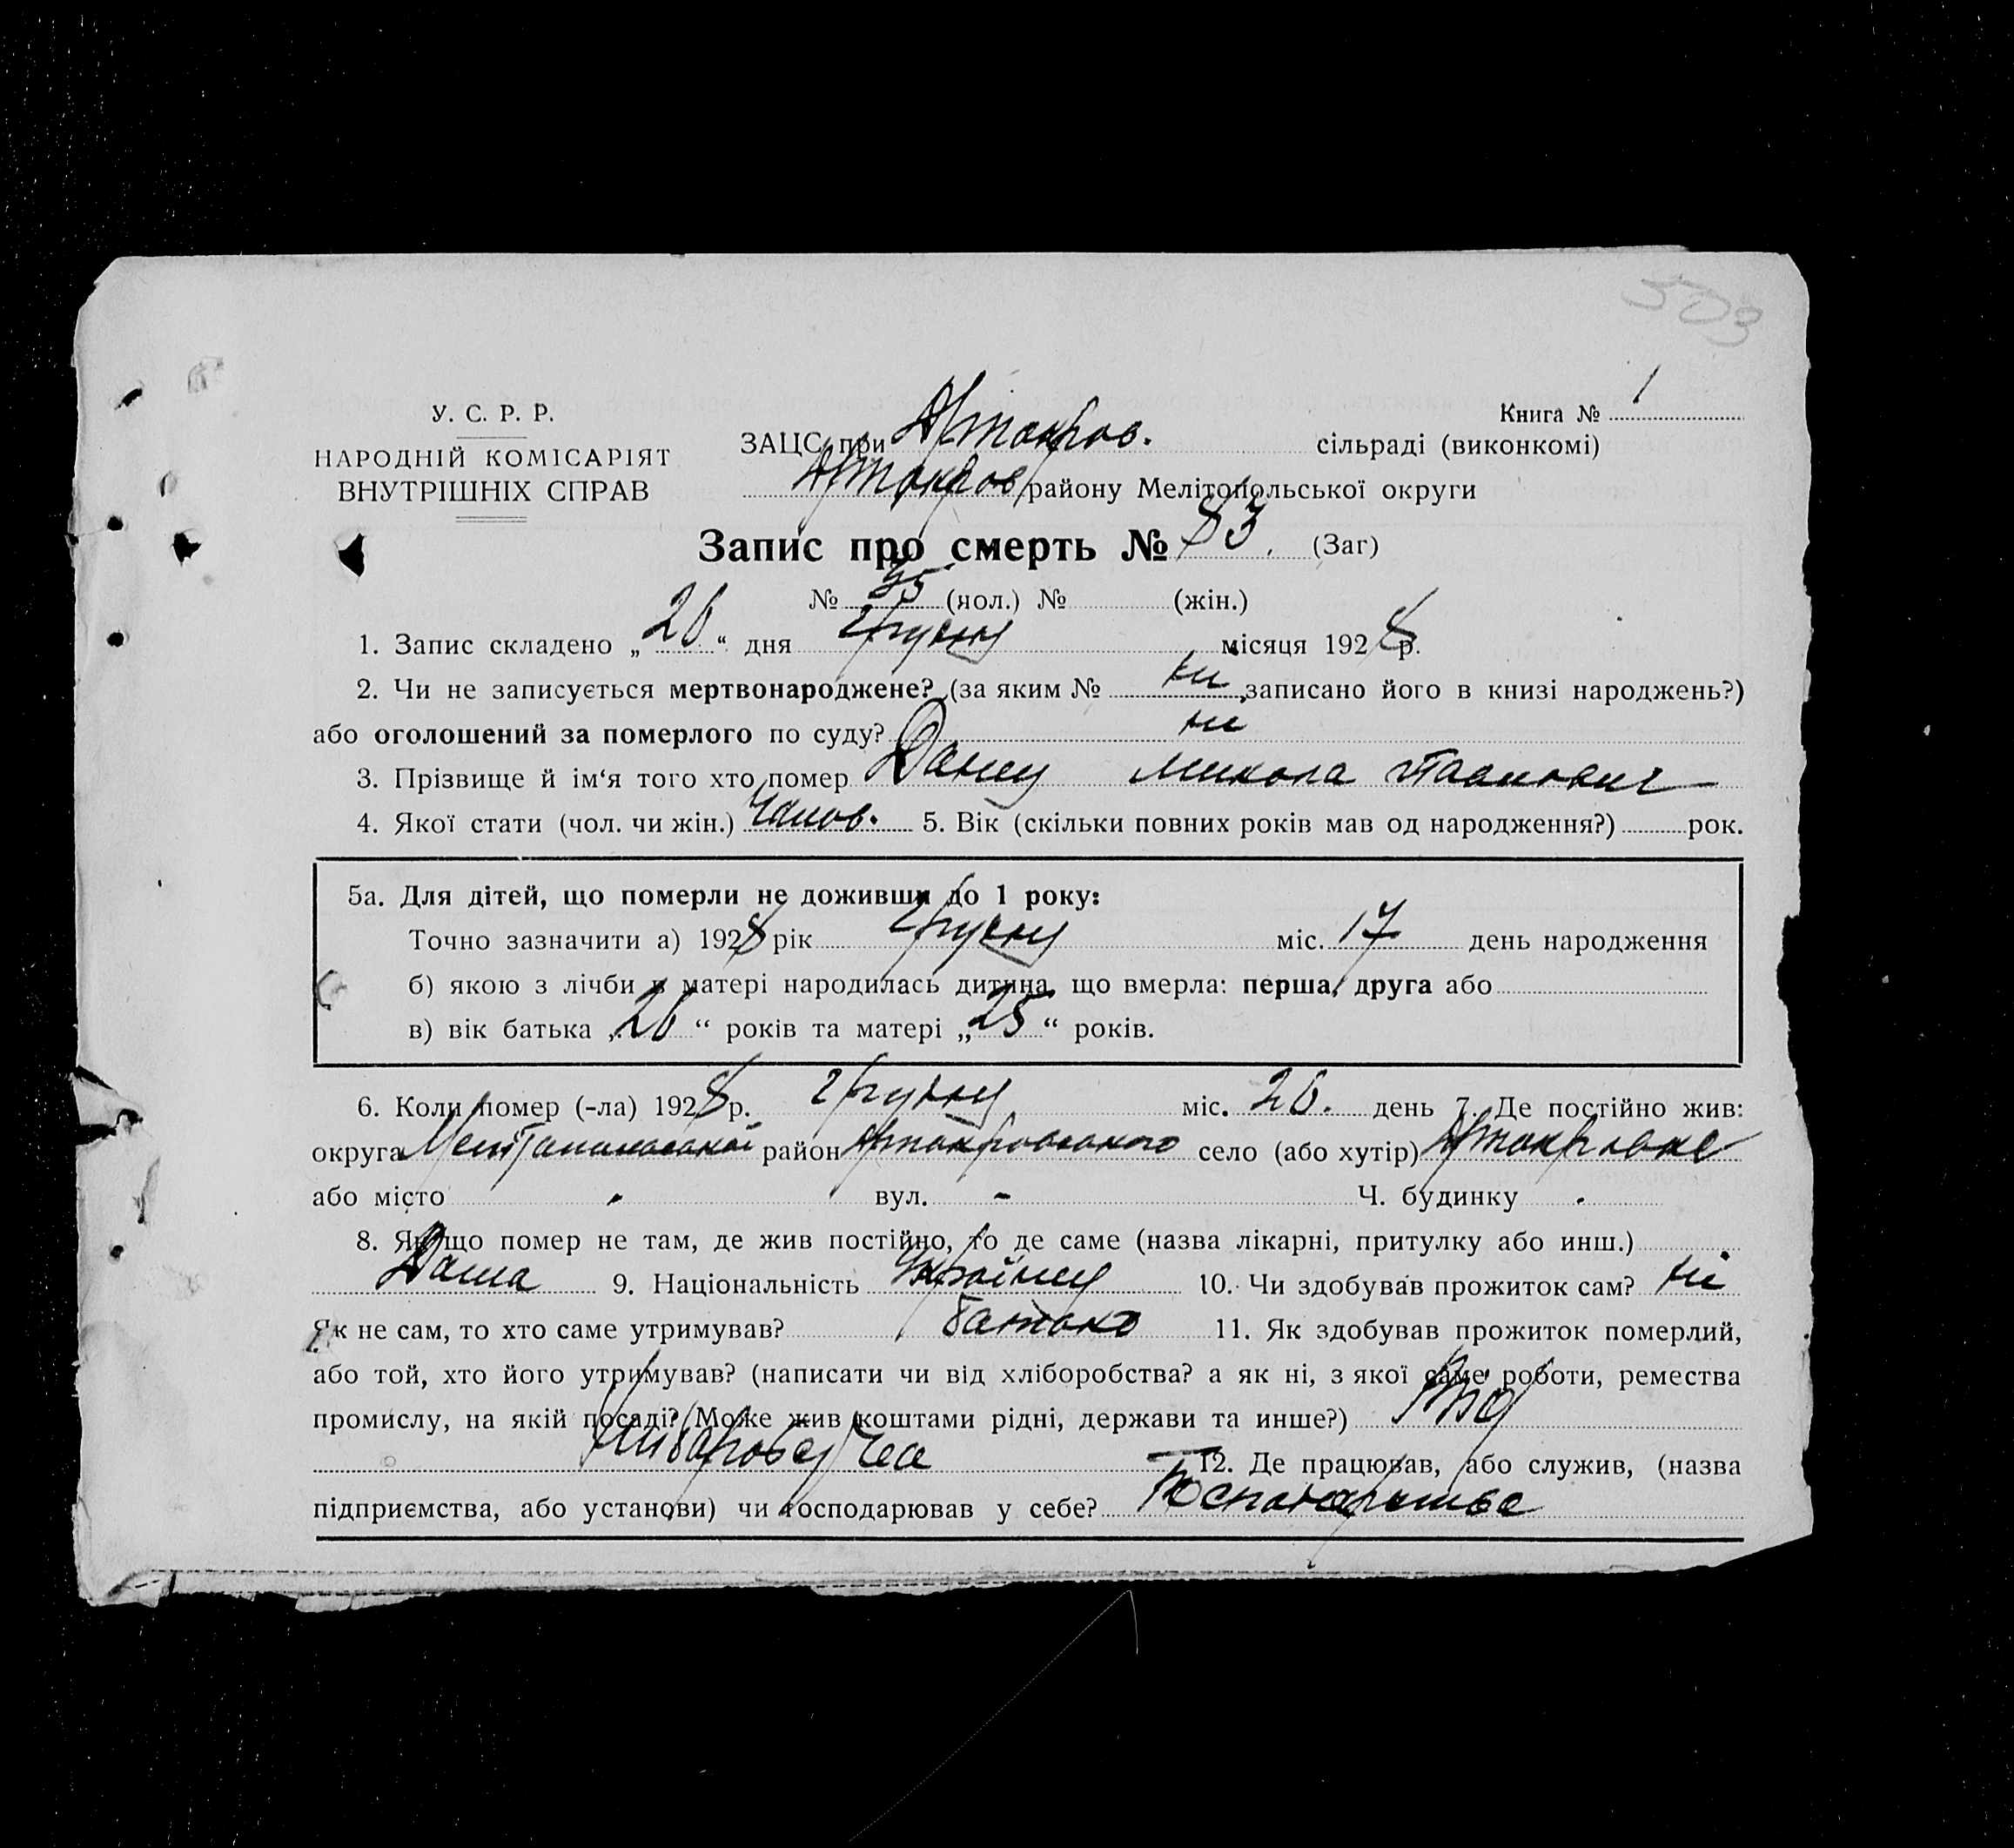 503
Книга № 1
У. С. Р. Р.
НАРОДНІЙ КОМІСАРІЯТ
ВНУТРІШНІХ СПРАВ
ЗАЦС при сільраді (виконкомі)
району Мелітопольської округи
Запис про смерть № 83. (Заг)
№ 35 (чол.) № (жін.)
1. Запис складено „26“ дня грудня місяця 1928 р.
2. Чи не записується мертвонароджене? (за яким № ні записано його в книзі народжень?)
або оголошений за померлого по суду? ні
3. Прізвище й ім‘я того хто помер Микола Павлович
4. Якої стати (чол. чи жін.) Чолов. 5. Вік (скільки повних років мав од народження?) рок.
5а. Для дітей, що померли не доживши до 1 року:
Точно зазначити а) 1928 рік грудня міс. 17 день народження
б) якою з лічби в матері народилась дитина, що вмерла: перша, друга або
в) вік батька „26“ років та матері „25“ років.
6. Коли помер (-ла) 1928 р. грудня міс. 26. день 7. Де постійно жив:
округа район село (або хутір)
або місто вул. - Ч. будинку
8. Якщо помер не там, де жив постійно, то де саме (назва лікарні, притулку або инш.)
Дома 9. Національність Українец 10. Чи здобував прожиток сам? ні
Як не сам, то хто саме утримував? батько 11. Як здобував прожиток померлий,
або той, хто його утримував? (написати чи від хліборобства? а як ні, з якої саме роботи, ремества
промислу, на якій посаді? Може жив коштами рідні, держави та инше?) Від
12. Де працював, або служив, (назва
підприємства, або установи) чи господарював у себе?